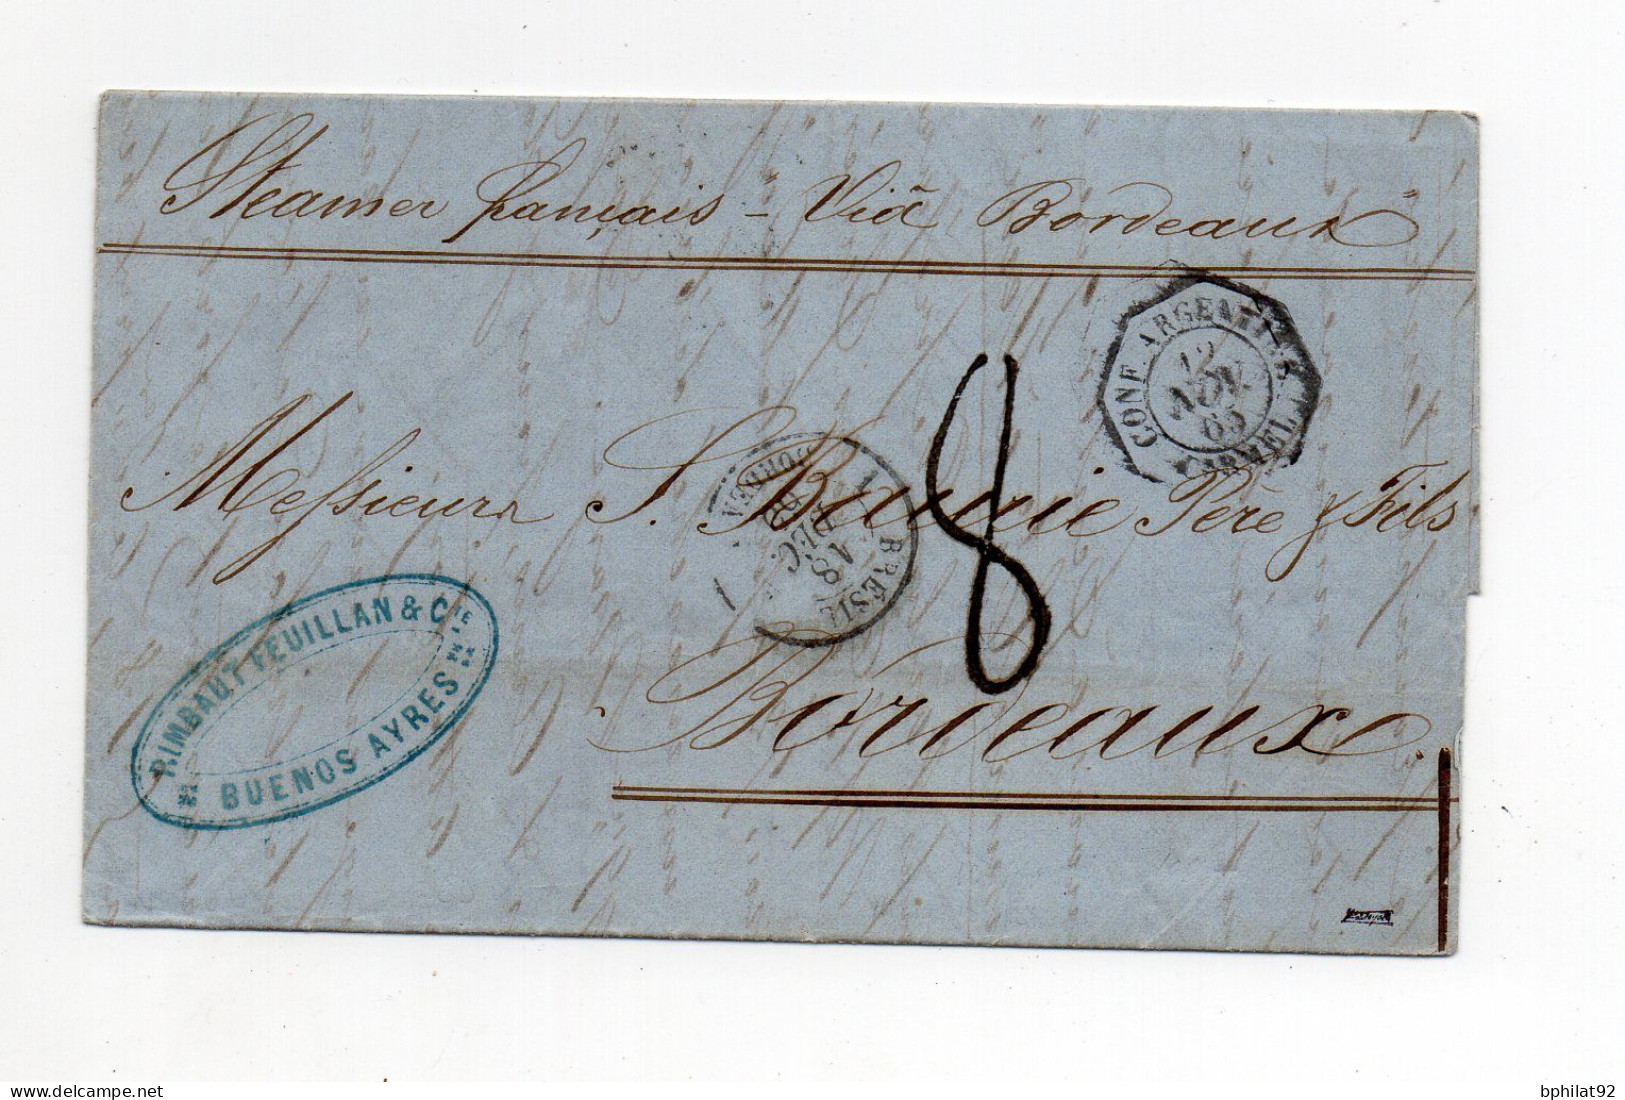 Steamer français - Viã Bordeaux
CONF. ARGENTINE
12
NOV.
65
CARMEL
8
Messieurs S. Père & Fils
BRESIL
BORDEAUX
8
DEC.
65
Bordeaux.
P. RIMBAUT FEUILLAN & CIE
BUENOS AYRES
delcampe.net
bphilat92